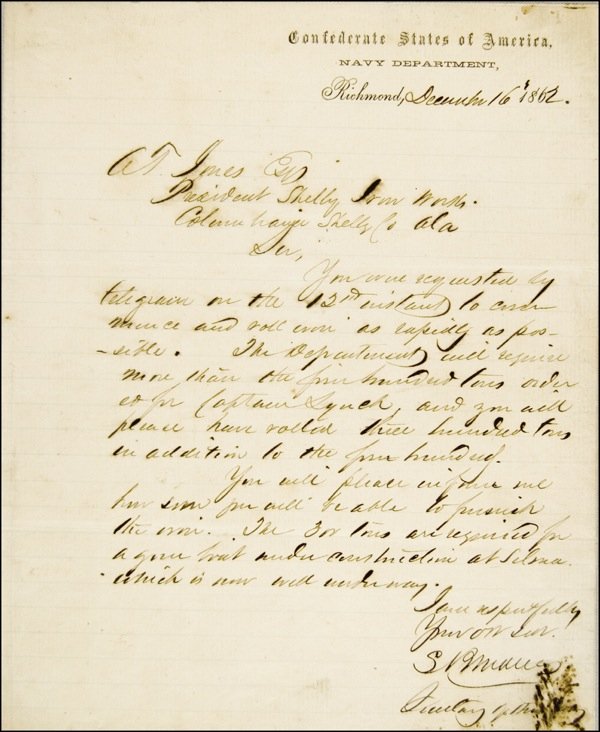 Confederate States of America,
NAVY DEPARTMENT,
Richmond, December 16th 1862.
A T. Jones Esq
President Shelby Iron Works.
Columbiana Shelby Co Ala
Sir,
You were requested by
telegram on the 12th instant to com
mence and roll iron as rapidly as pos-
-sible. The Department will require
more than the four hundred tons order
ed for Captain Lynch, and you will
please have rolled three hundred tons
in addition to the four hundred.
You will please inform me
how soon you will be able to furnish
the iron. The 300 tons are required for
a gun boat under construction at Selma.
which is now well underway.
I am respectfully
Your obt serv.
S R Mallory
Secretary of the Navy